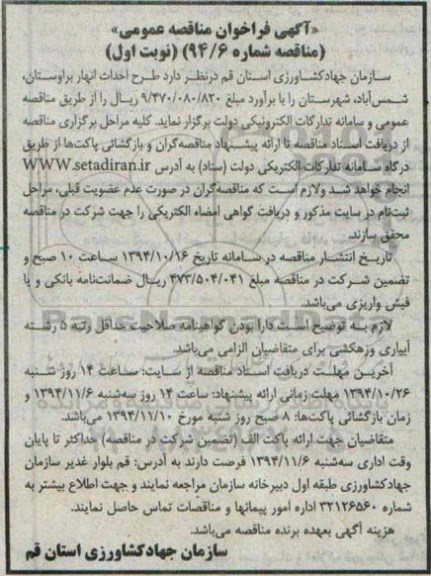 «آگهی فراخوان مناقصه عمومی»
(مناقصه شماره ۹۴/۶) (نوبت اول)
سازمان جهادکشاورزی استان قم درنظر دارد طرح احداث انهار براوستان،
شمس‌آباد، شهرستان را با برآورد مبلغ ۹/۴۷۰/۰۸۰/۸۲۰ ریـال را از طریق مناقصه
عمومی و سامانه تدارکات الکترونیکی دولت برگزار نماید. کلیه مراحل برگزاری مناقصه
از دریافت اسـناد مناقصه تا ارائه پیشنهاد مناقصه‌گران و بازگشائی پاکت‌ها از طریق
درگاه سامانه تدارکات الکتریکی دولت (ستاد) به آدرس WWW.setadiran.ir
انجام خواهد شـد ولازم است که مناقصه‌گران در صورت عدم عضویت قبلی، مراحل
ثبت‌نام در سایت مذکور و دریافت گواهی امضاء الکتریکی را جهت شرکت در مناقصه
محقق سازند.
تاریـخ انتشـار مناقصه در سـامانه تاریخ ۱۳۹۴/۱۰/۱۶ ساعت ۱۰ صبح و
تضمین شـرکت در مناقصه مبلغ ۴۷۳/۵۰۴/۰۴۱ ریـال ضمانت‌نامه بانکی و یا
فیش واریزی می‌باشد.
لازم بـه توضیح اسـت دارا بودن گواهینامه صلاحیت حداقل رتبه ۵ رشـته
آبیاری وزهکشی برای متقاضیان الزامی می‌باشد.
آخریـن مهلـت دریافـت اسـناد مناقصه از سـایت: سـاعت ۱۴ روز شـنبه
۱۳۹۴/۱۰/۲۶ مهلت زمانی ارائه پیشنهاد: ساعت ۱۴ روز سه‌شنبه ۱۳۹۴/۱۱/۶ و
زمان بازگشائی پاکت‌ها: ۸ صبح روز شنبه مورخ ۱۳۹۴/۱۱/۱۰ می‌باشد.
متقاضیان جهت ارائه پاکت الف (تضمین شرکت در مناقصه) حداکثر تا پایان
وقت اداری سه‌شنبه ۱۳۹۴/۱۱/۶ فرصت دارند به آدرس: قم بلوار غدیر سازمان
جهادکشاورزی طبقه اول دبیرخانه سازمان مراجعه نمایند و جهت اطلاع بیشتر به
شماره ۳۲۱۲۶۵۶۰ اداره امور پیمانها و مناقصات تماس حاصل نمایند.
هزینه آگهی بعهده برنده مناقصه می‌باشد.
سازمان جهادکشاورزی استان قم
ParsNamadData